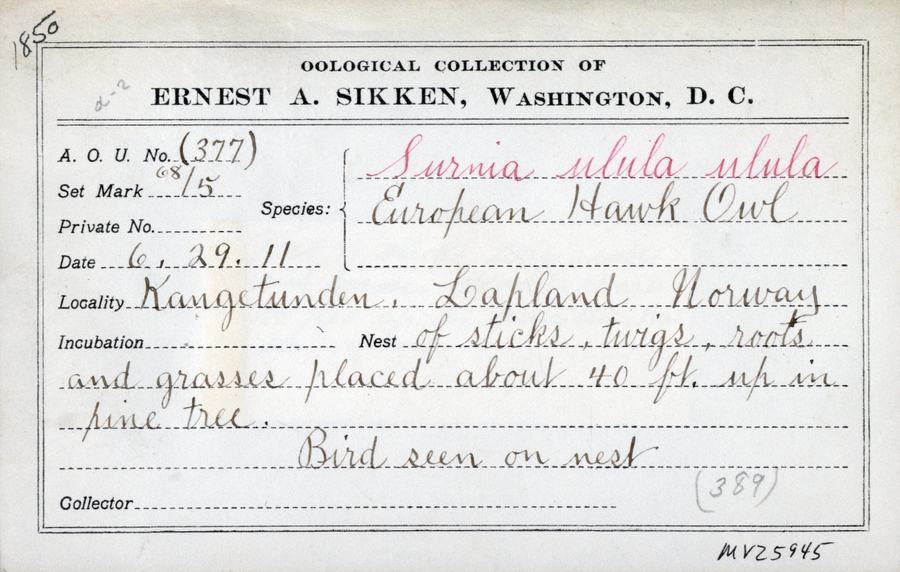 1850
d-2
OOLOGICAL COLLECTION OF
ERNEST A. SIKKEN, WASHINGTON, D. C.
A. O. U. No. (377)
Set Mark 68/5
Private No.
Date 6. 29. 11
Species: Surnia ulula ulula
European Hawk Owl
Locality Kangetunden. Lapland Norway
Incubation Nest of sticks, twigs, roots
and grasses placed about 40 ft. up in
pine tree.
Bird seen on nest
Collector
(389)
MVZ5945